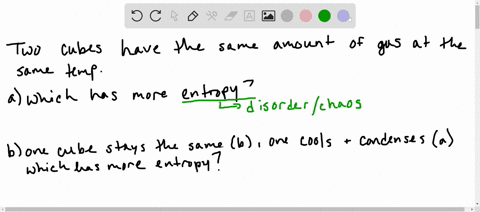 Two cubes have the same amount of gas at the
same temp.
a) which has more entropy?
disorder/chaos
b) one cube stays the same (b), one cools + condenses (a)
which has more entropy?